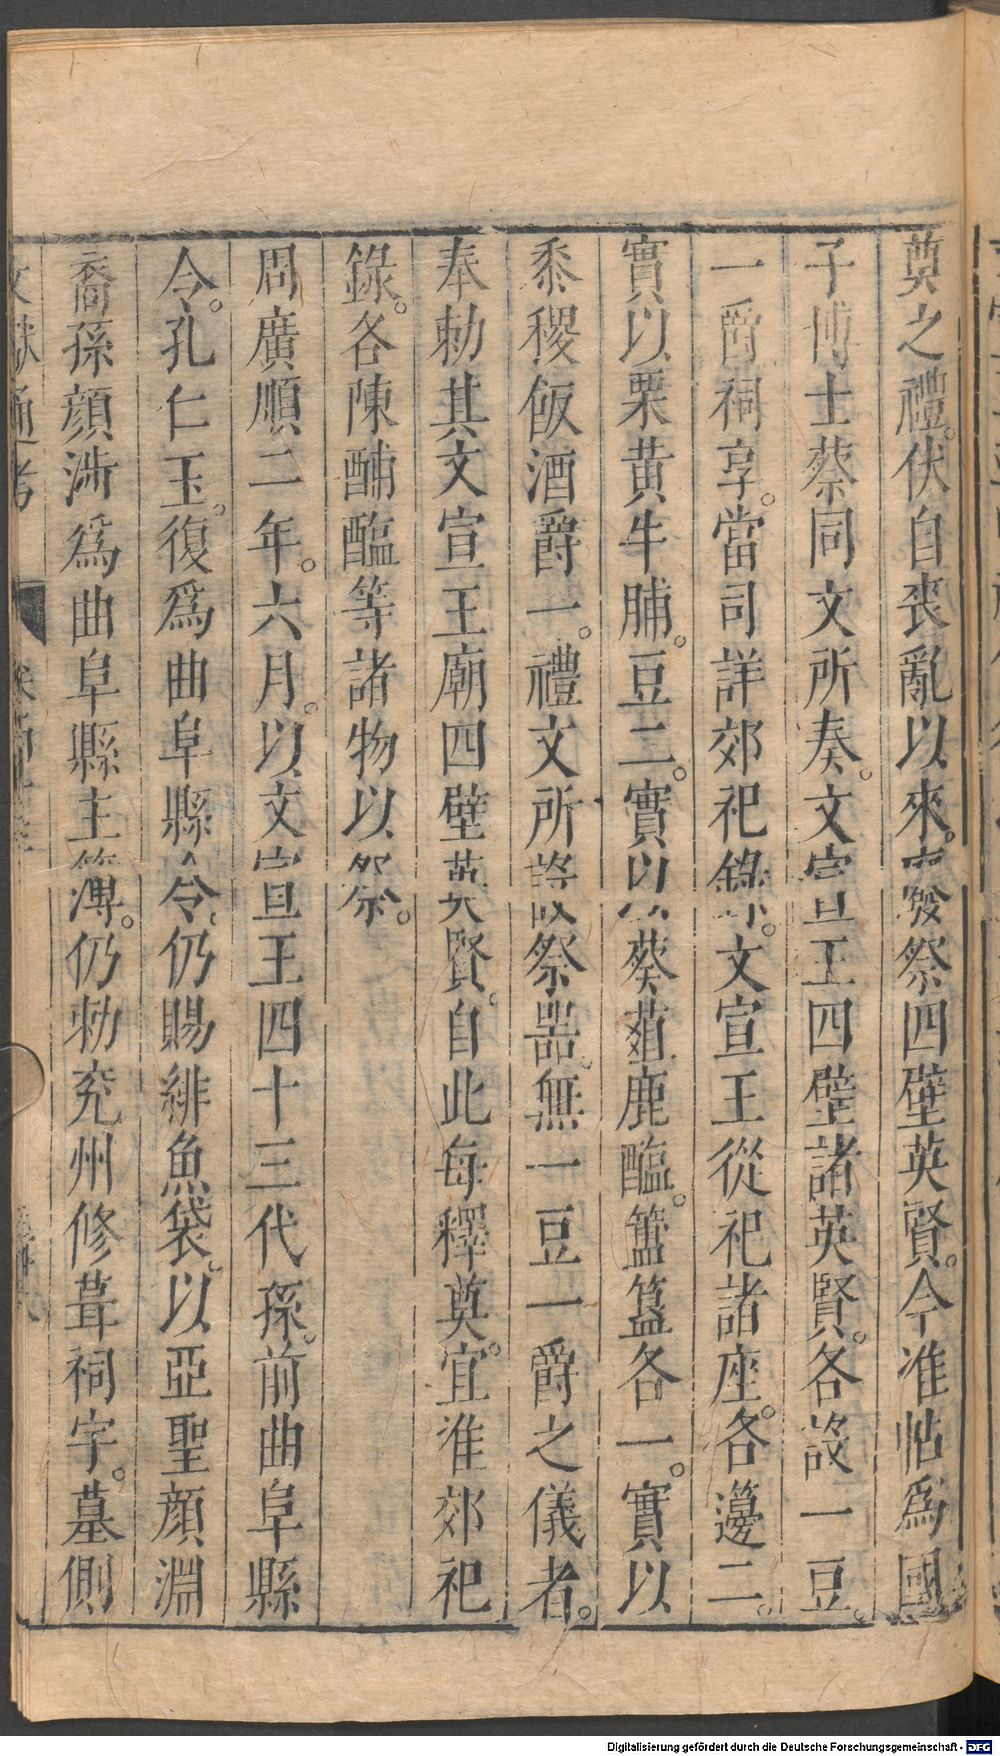 奠之禮。伏自喪亂以來。廢祭四壁英賢。今准帖爲國
子博士蔡同文所奏。文宣王四壁諸英賢。各設一豆。
一爵祠享。當司詳郊祀錄。文宣王從祀諸座。各籩二。
實以栗黄牛脯。豆二。實以葵葅鹿醢。簠簋各一。實以
黍稷飯酒爵一。禮文所設祭器。無一豆一爵之儀者。
奉勅其文宣王廟四壁英賢。自此每釋奠。宜准郊祀
錄。各陳酺醢等諸物以祭。
周廣順二年。六月。以文宣王四十三代孫。前曲阜縣
令。孔仁玉。復爲曲阜縣令。仍賜緋魚袋。以亞聖顔淵
裔孫顔涉爲曲阜縣主簿。仍勅兖州修葺祠宇。墓側
文獻通考
Digitalisierung gefördert durch die Deutsche Forschungsgemeinschaft - DFG